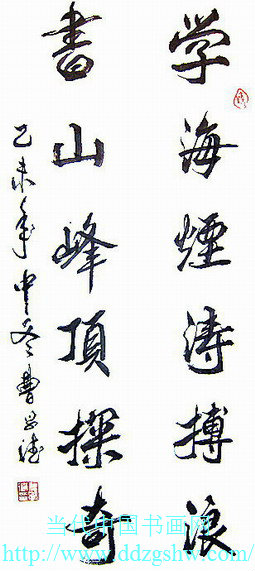 学海煙涛搏浪
書山峰頂探奇
己未年中冬曹
当代中国书画网
http://www.ddzgshw.com/